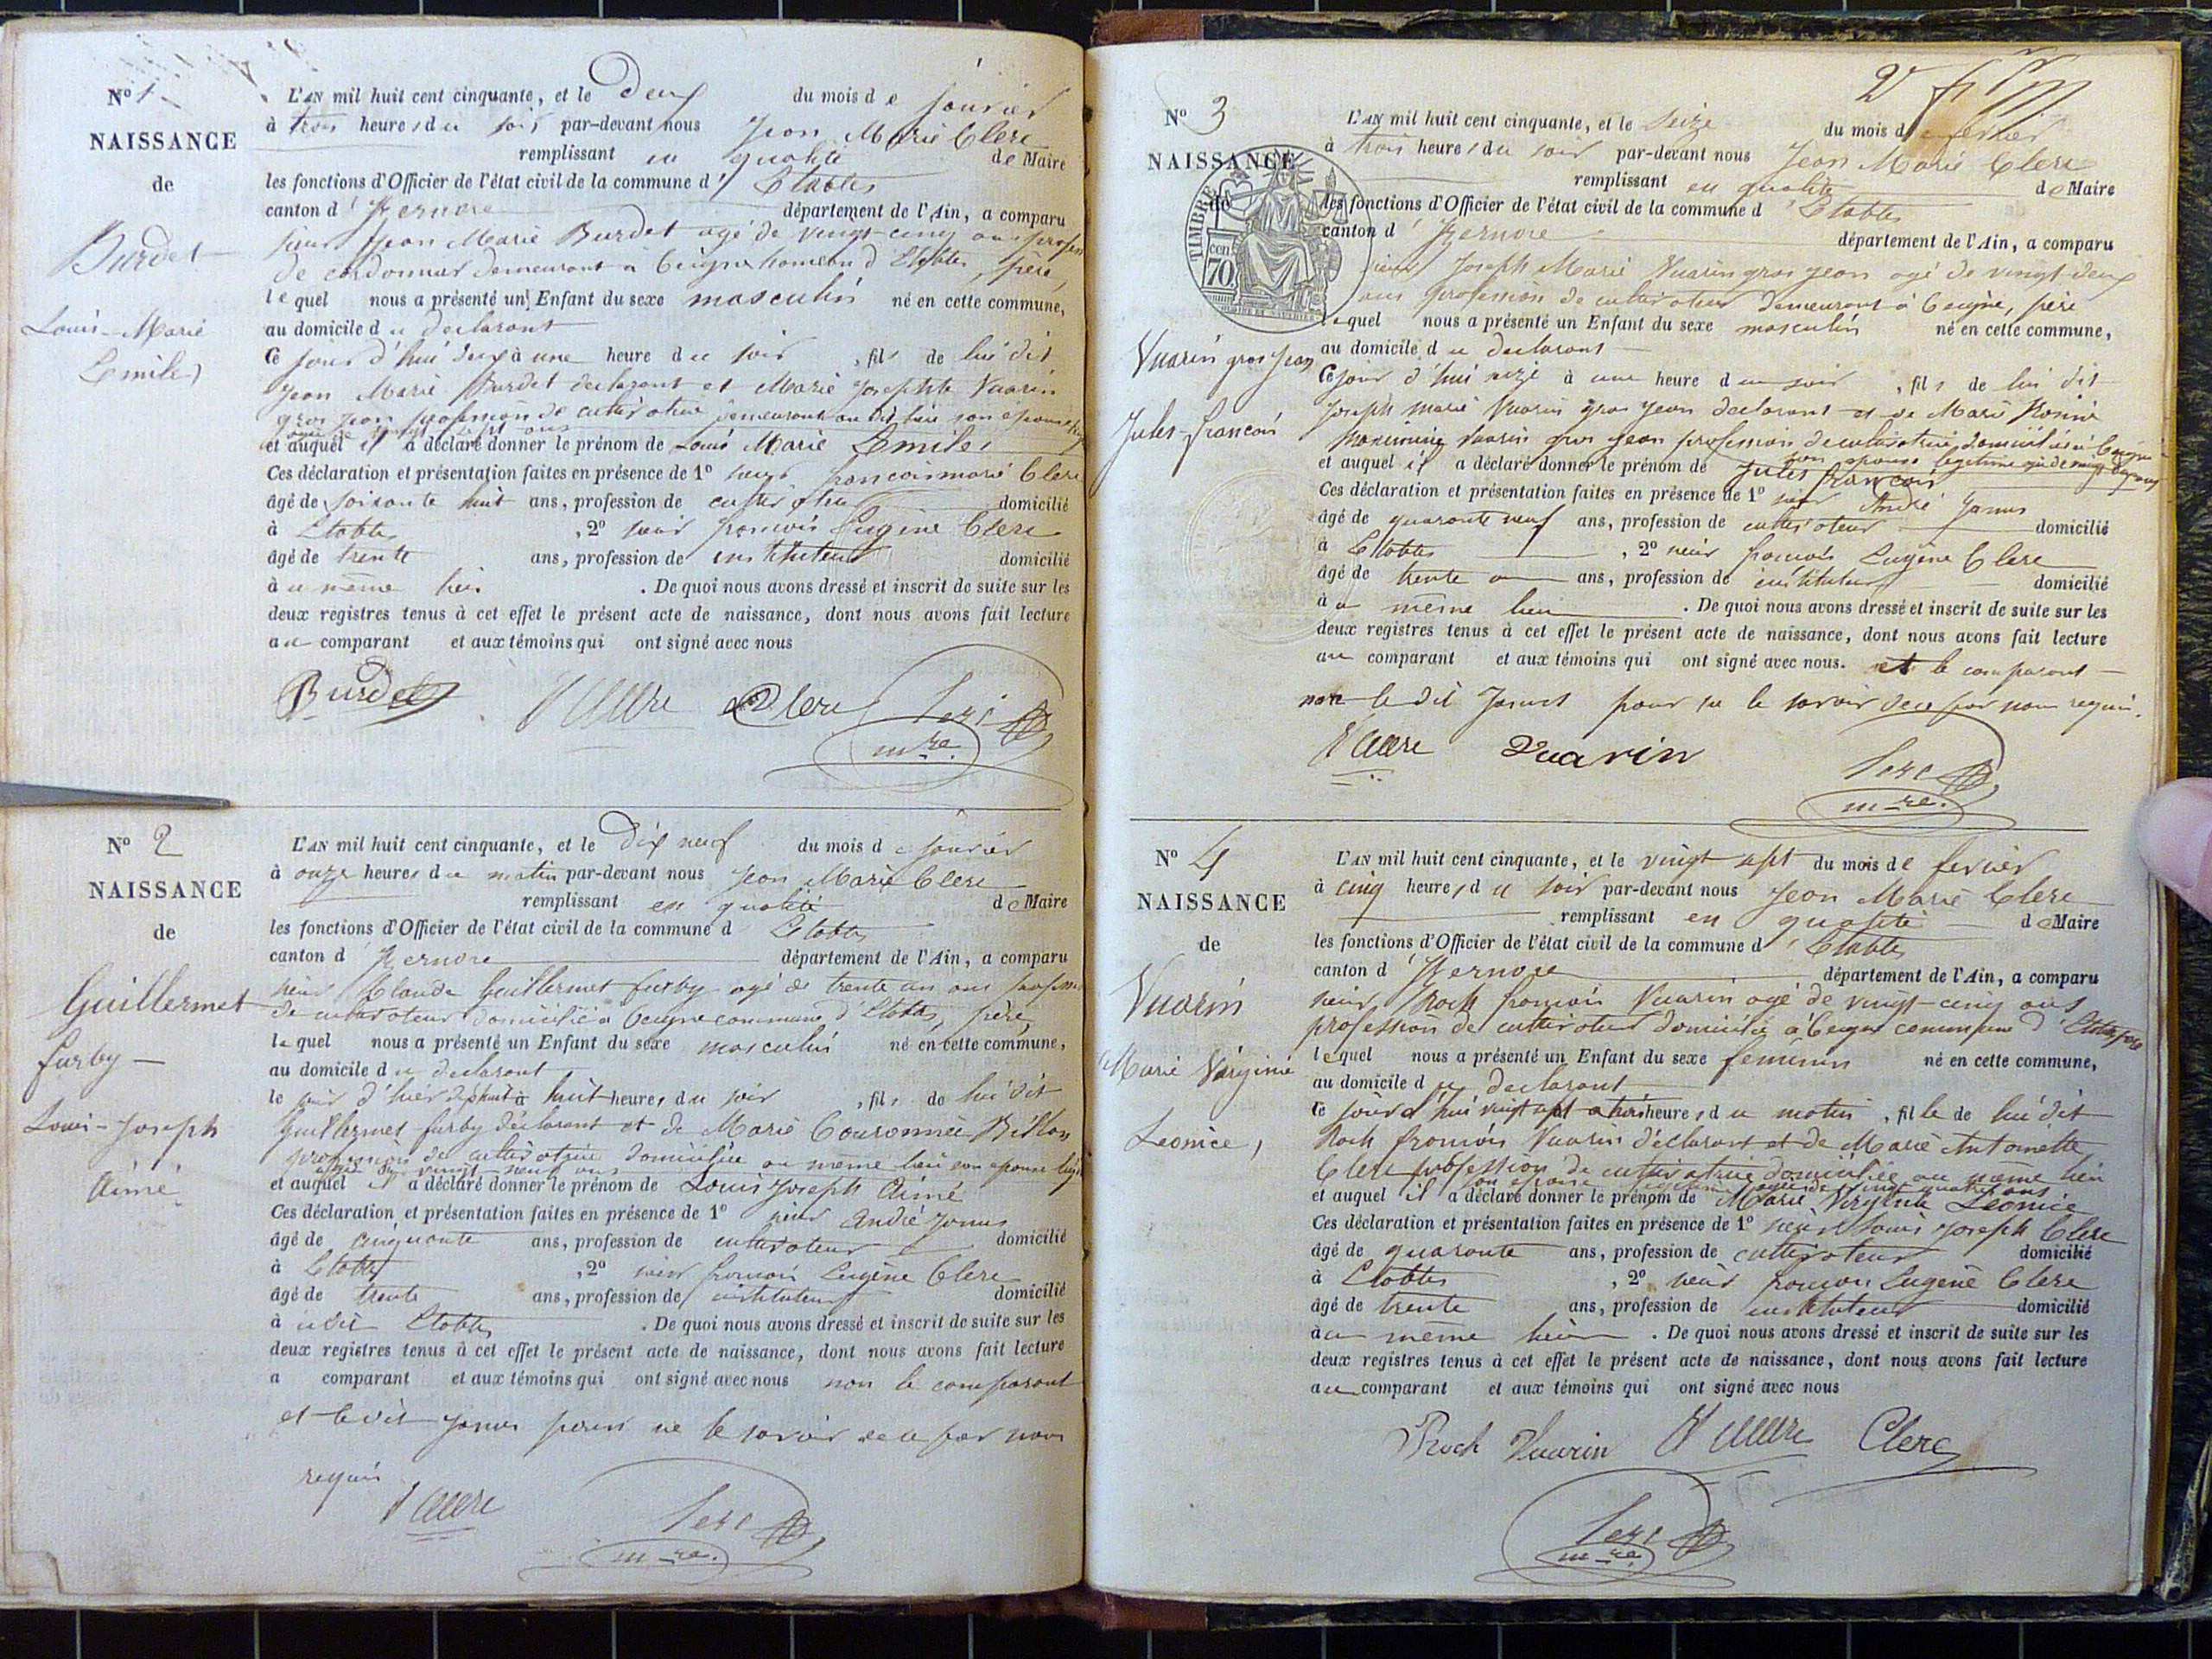 1
N° 1
NAISSANCE
de
Burdet
Louis-Marie
Emile
L'AN mil huit cent cinquante, et le Deux du mois de janvier
à trois heures du soir par-devant nous Jean Marie Clerc
remplissant en qualité de Maire
les fonctions d'Officier de l'état civil de la commune d' Etables
canton d' département de l'Ain, a comparu
sieur Jean Marie Burdet agé de vingt-cinq ans profession
de cordonnier demeurant a Ceigne hameau d'Etables, père,
lequel nous a présenté un Enfant du sexe masculin né en cette commune,
au domicile du declarant
Ce jour d'hui deux à une heure du soir, fils de lui dit
Jean Marie Burdet declarant et Marie Josephte Vuarin
gros jean profession de cultivatrice demeurant au dit lieu son épouse
et auquel il a déclaré donner le prénom de Louis Marie Emile
Ces déclaration et présentation faites en présence de 1° sieur francois marie Clerc
âgé de soixante huit ans, profession de domicilié
à Etables, 2° sieur francois Eugène Clerc
âgé de trente ans, profession de instituteur domicilié
à u même lieu. De quoi nous avons dressé et inscrit de suite sur les
deux registres tenus à cet effet le présent acte de naissance, dont nous avons fait lecture
au comparant et aux témoins qui ont signé avec nous
Burdet Clerc
mre
N° 2
NAISSANCE
de
Guillermet
furby
Louis-Joseph
Aimé
L'AN mil huit cent cinquante, et le Dix neuf du mois de janvier
à onze heures du matin par-devant nous Jean Marie Clerc
remplissant en qualité de Maire
les fonctions d'Officier de l'état civil de la commune d Etables
canton d' département de l'Ain, a comparu
sieur Claude Guillermet furby agé de trente un ans profession
de cultivateur domicilié a Ceigne commune d'Etables, père,
lequel nous a présenté un Enfant du sexe masculin né en cette commune,
au domicile du declarant
le jour d'hier dix huit à huit heures du soir, fils de lui dit
Guillermet furby déclarant et de Marie Couronnée Billon
profession de cultivatrice domiciliée au même lieu son epouse
agée de vingt-neuf ans
et auquel il a déclaré donner le prénom de Louis Joseph Aimé
Ces déclaration et présentation faites en présence de 1° sieur André
âgé de cinquante ans, profession de cultivateur domicilié
à Etables, 2° sieur francois Eugène Clerc
âgé de trente ans, profession de instituteur domicilié
à Etables. De quoi nous avons dressé et inscrit de suite sur les
deux registres tenus à cet effet le présent acte de naissance, dont nous avons fait lecture
a comparant et aux témoins qui ont signé avec nous non le comparant
et le dit pour ne le savoir de ce par nous
requis
mre.
2
N° 3
NAISSANCE
de
TIMBRE
70
Vuarin gros Jean
Jules-francois
L'AN mil huit cent cinquante, et le seize du mois de fevrier
à trois heures du soir par-devant nous Jean Marie Clerc
remplissant en qualité de Maire
les fonctions d'Officier de l'état civil de la commune d' Etables
canton d' département de l'Ain, a comparu
sieur Joseph Marie Vuarin gros jean agé de vingt-deux
ans profession de cultivateur demeurant à Ceigne, père
lequel nous a présenté un Enfant du sexe masculin né en cette commune,
au domicile du declarant
Ce jour d'hui seize à une heure du soir, fils de lui dit
Joseph Marie Vuarin gros jean declarant et de Marie
Vuarin gros jean profession de cultivatrice domiciliée à Ceigne
son epouse legitime
et auquel il a déclaré donner le prénom de Jules francois
Ces déclaration et présentation faites en présence de 1° sieur André
âgé de quarante neuf ans, profession de cultivateur domicilié
à Etables, 2° sieur francois Eugène Clerc
âgé de trente ans, profession de instituteur domicilié
à u même lieu. De quoi nous avons dressé et inscrit de suite sur les
deux registres tenus à cet effet le présent acte de naissance, dont nous avons fait lecture
au comparant et aux témoins qui ont signé avec nous. et le comparant
non le dit pour ne le savoir de ce par nous requis.
Vuarin
mre.
N° 4
NAISSANCE
de
Vuarin
Marie Virginie
Leonice
L'AN mil huit cent cinquante, et le vingt sept du mois de fevrier
à cinq heures du soir par-devant nous Jean Marie Clerc
remplissant en qualité de Maire
les fonctions d'Officier de l'état civil de la commune d' Etables
canton d' département de l'Ain, a comparu
sieur Roch francois Vuarin agé de vingt-cinq ans
profession de cultivateur domicilié à Ceigne commune d'Etables père
lequel nous a présenté un Enfant du sexe feminin né en cette commune,
au domicile du declarant
Ce jour d'hui vingt sept a trois heures du matin, fille de lui dit
Roch francois Vuarin déclarant et de Marie Antoinette
Clerc profession de cultivatrice domiciliée au même lieu
son epouse legitime agée de vingt quatre ans
et auquel il a déclaré donner le prénom de Marie Virginie Leonice
Ces déclaration et présentation faites en présence de 1° sieur Louis Joseph Clerc
âgé de quarante ans, profession de cultivateur domicilié
à Etables, 2° sieur francois Eugène Clerc
âgé de trente ans, profession de instituteur domicilié
à u même lieu. De quoi nous avons dressé et inscrit de suite sur les
deux registres tenus à cet effet le présent acte de naissance, dont nous avons fait lecture
au comparant et aux témoins qui ont signé avec nous
Roch Vuarin Clerc
mre